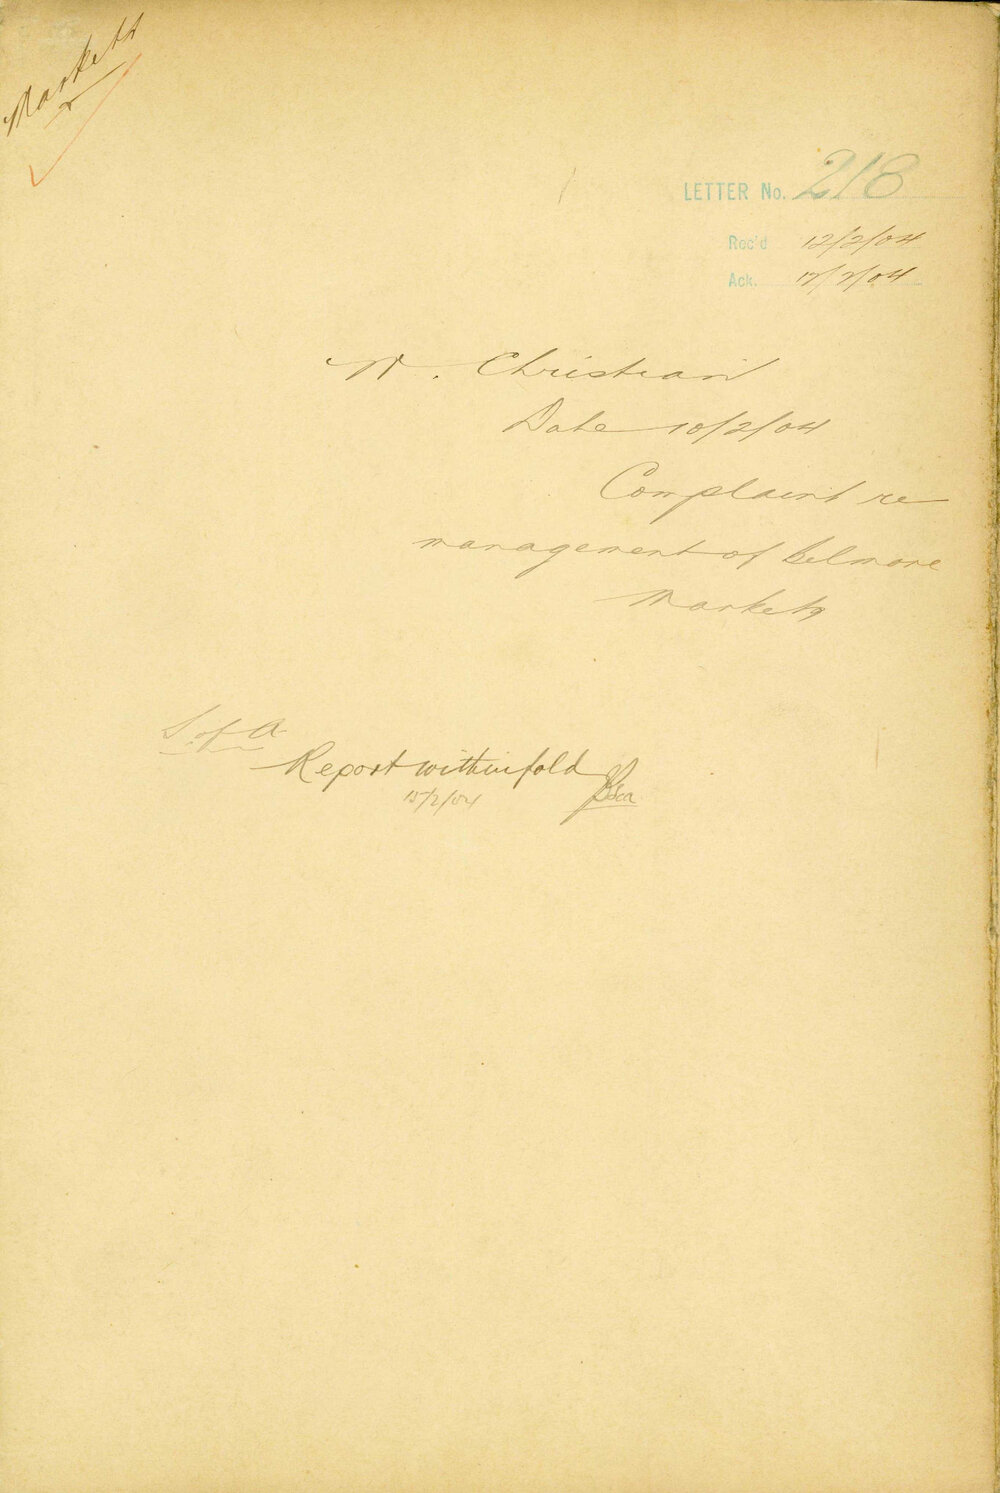 Markets
LETTER No. 218
Rec'd 12/2/04
Ack. 17/2/04
W. Christian
Date 10/2/04
Complaint re
management of Belmore
Markets
S. of A
Report within fold
15/2/04